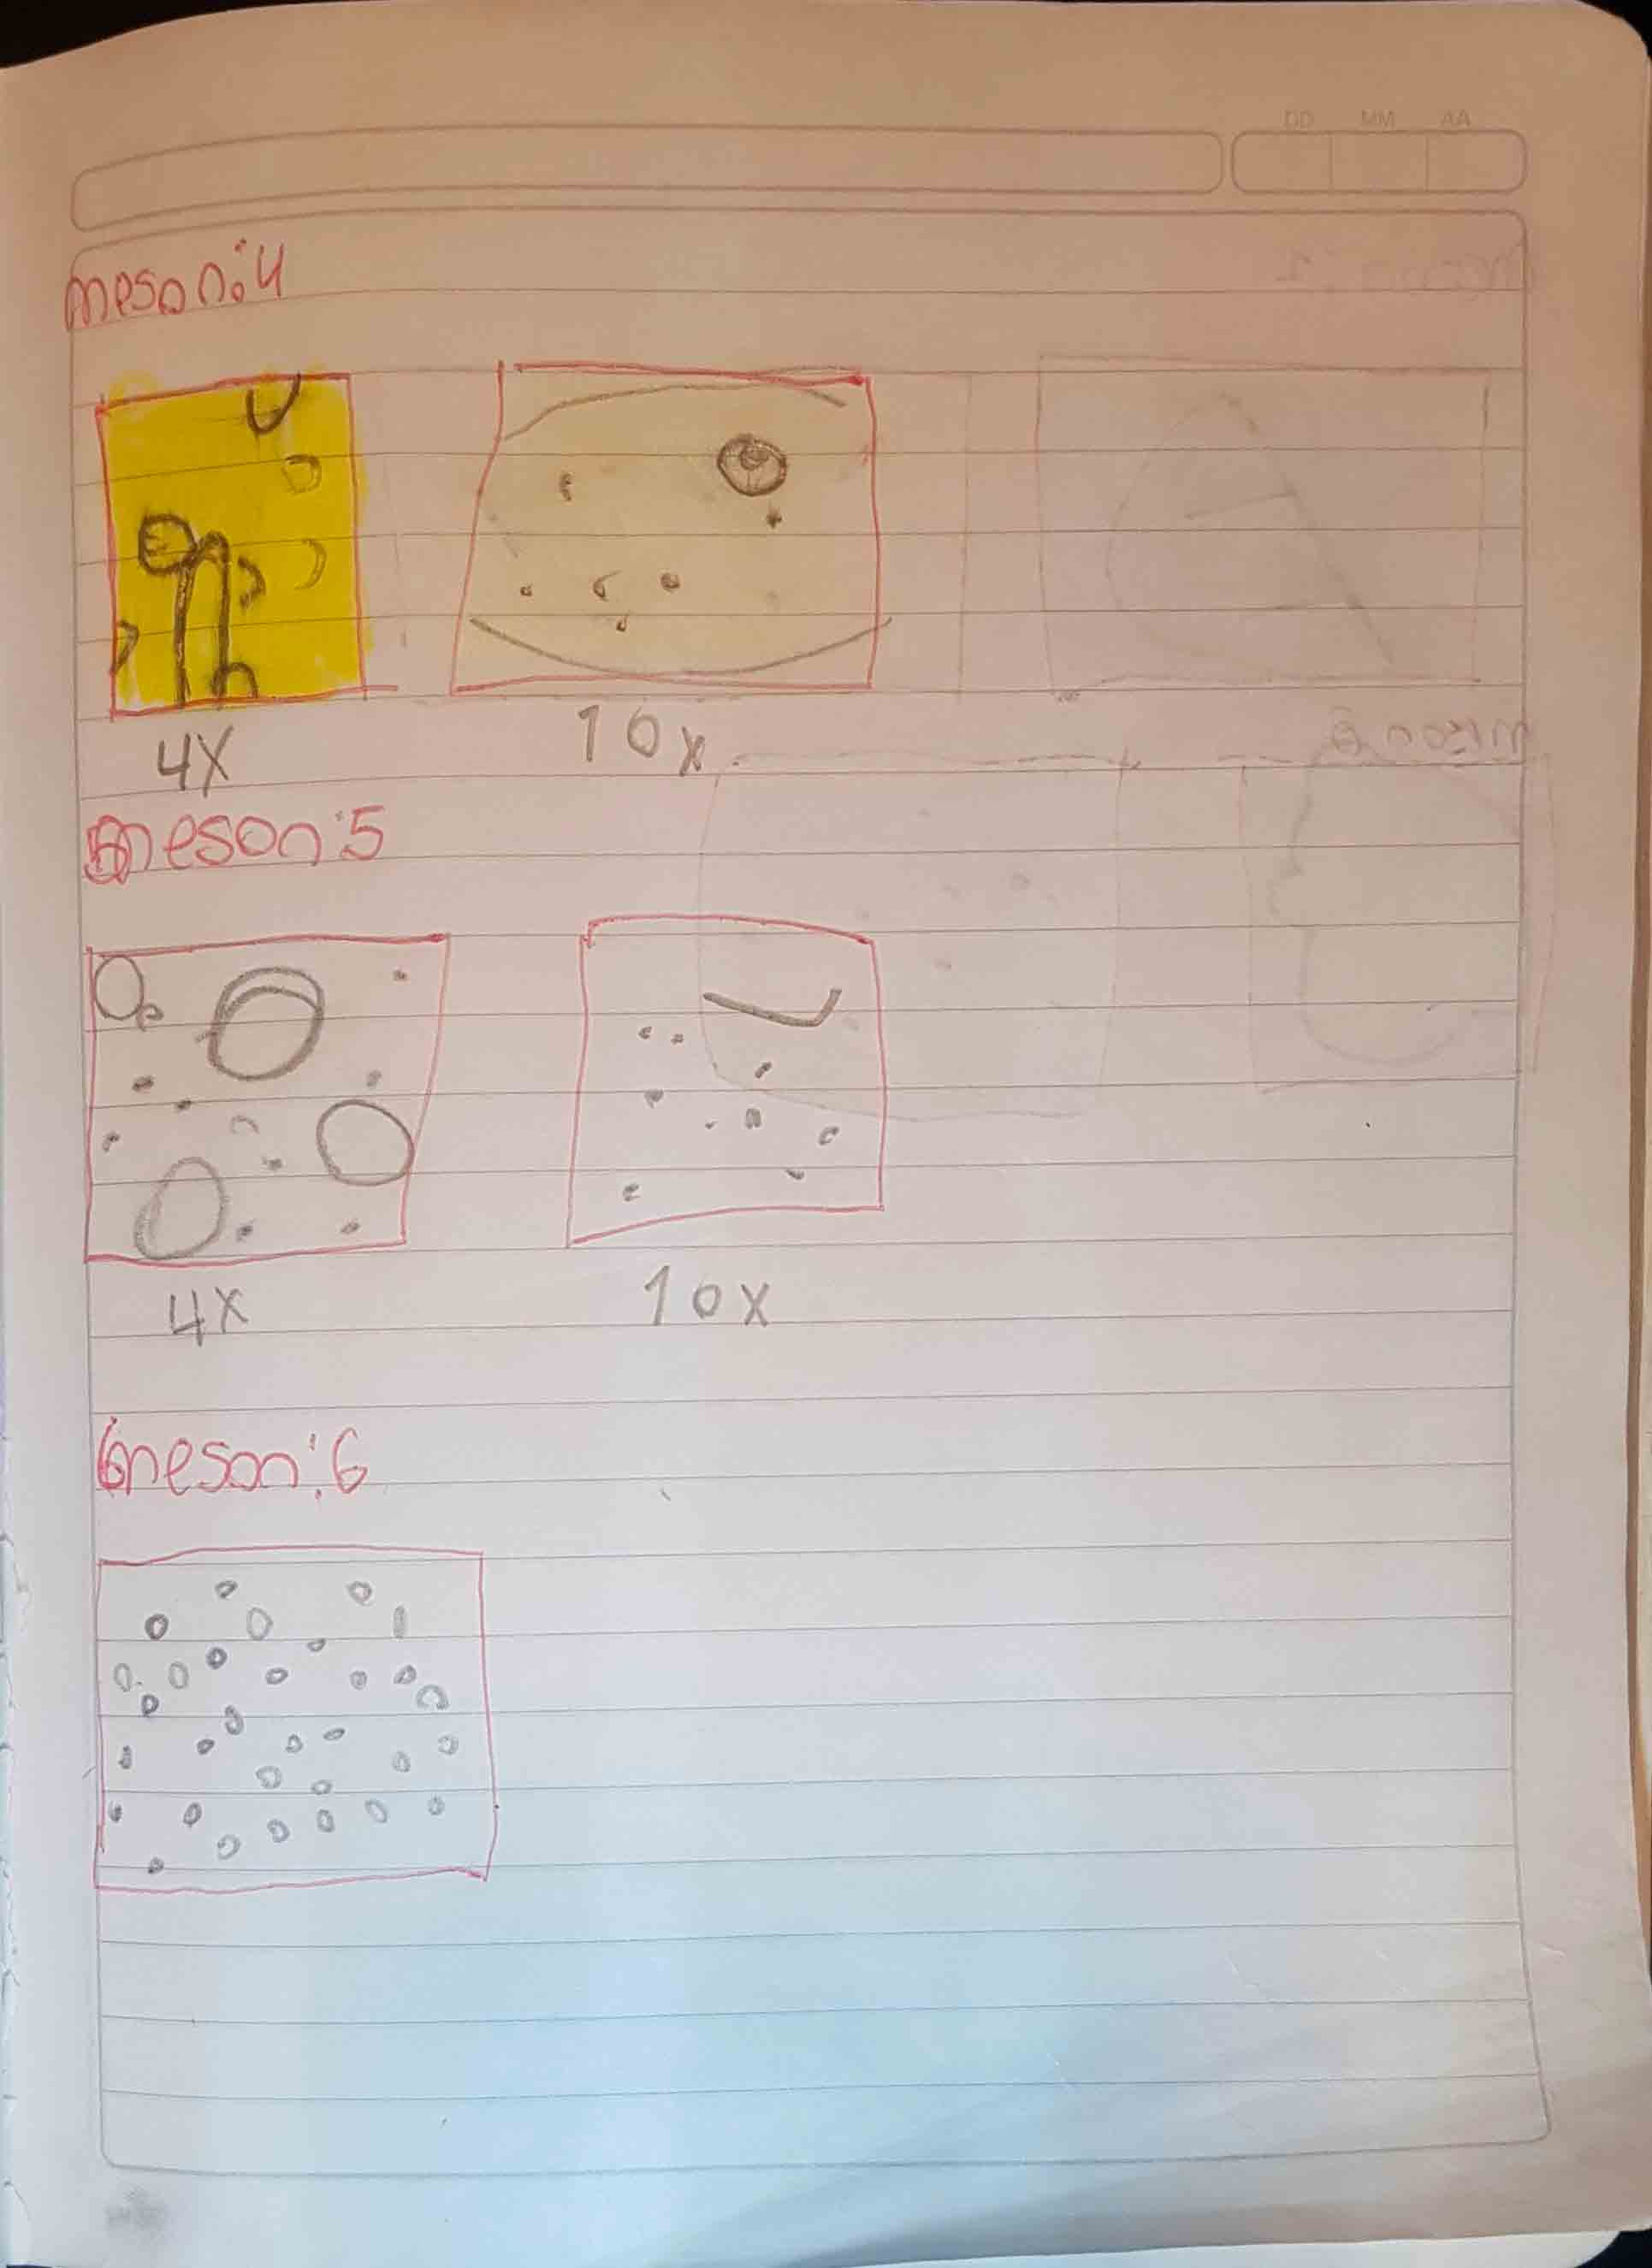 DD MM AA
meson:4
4X 10x
meson:5
4X 10X
meson:6